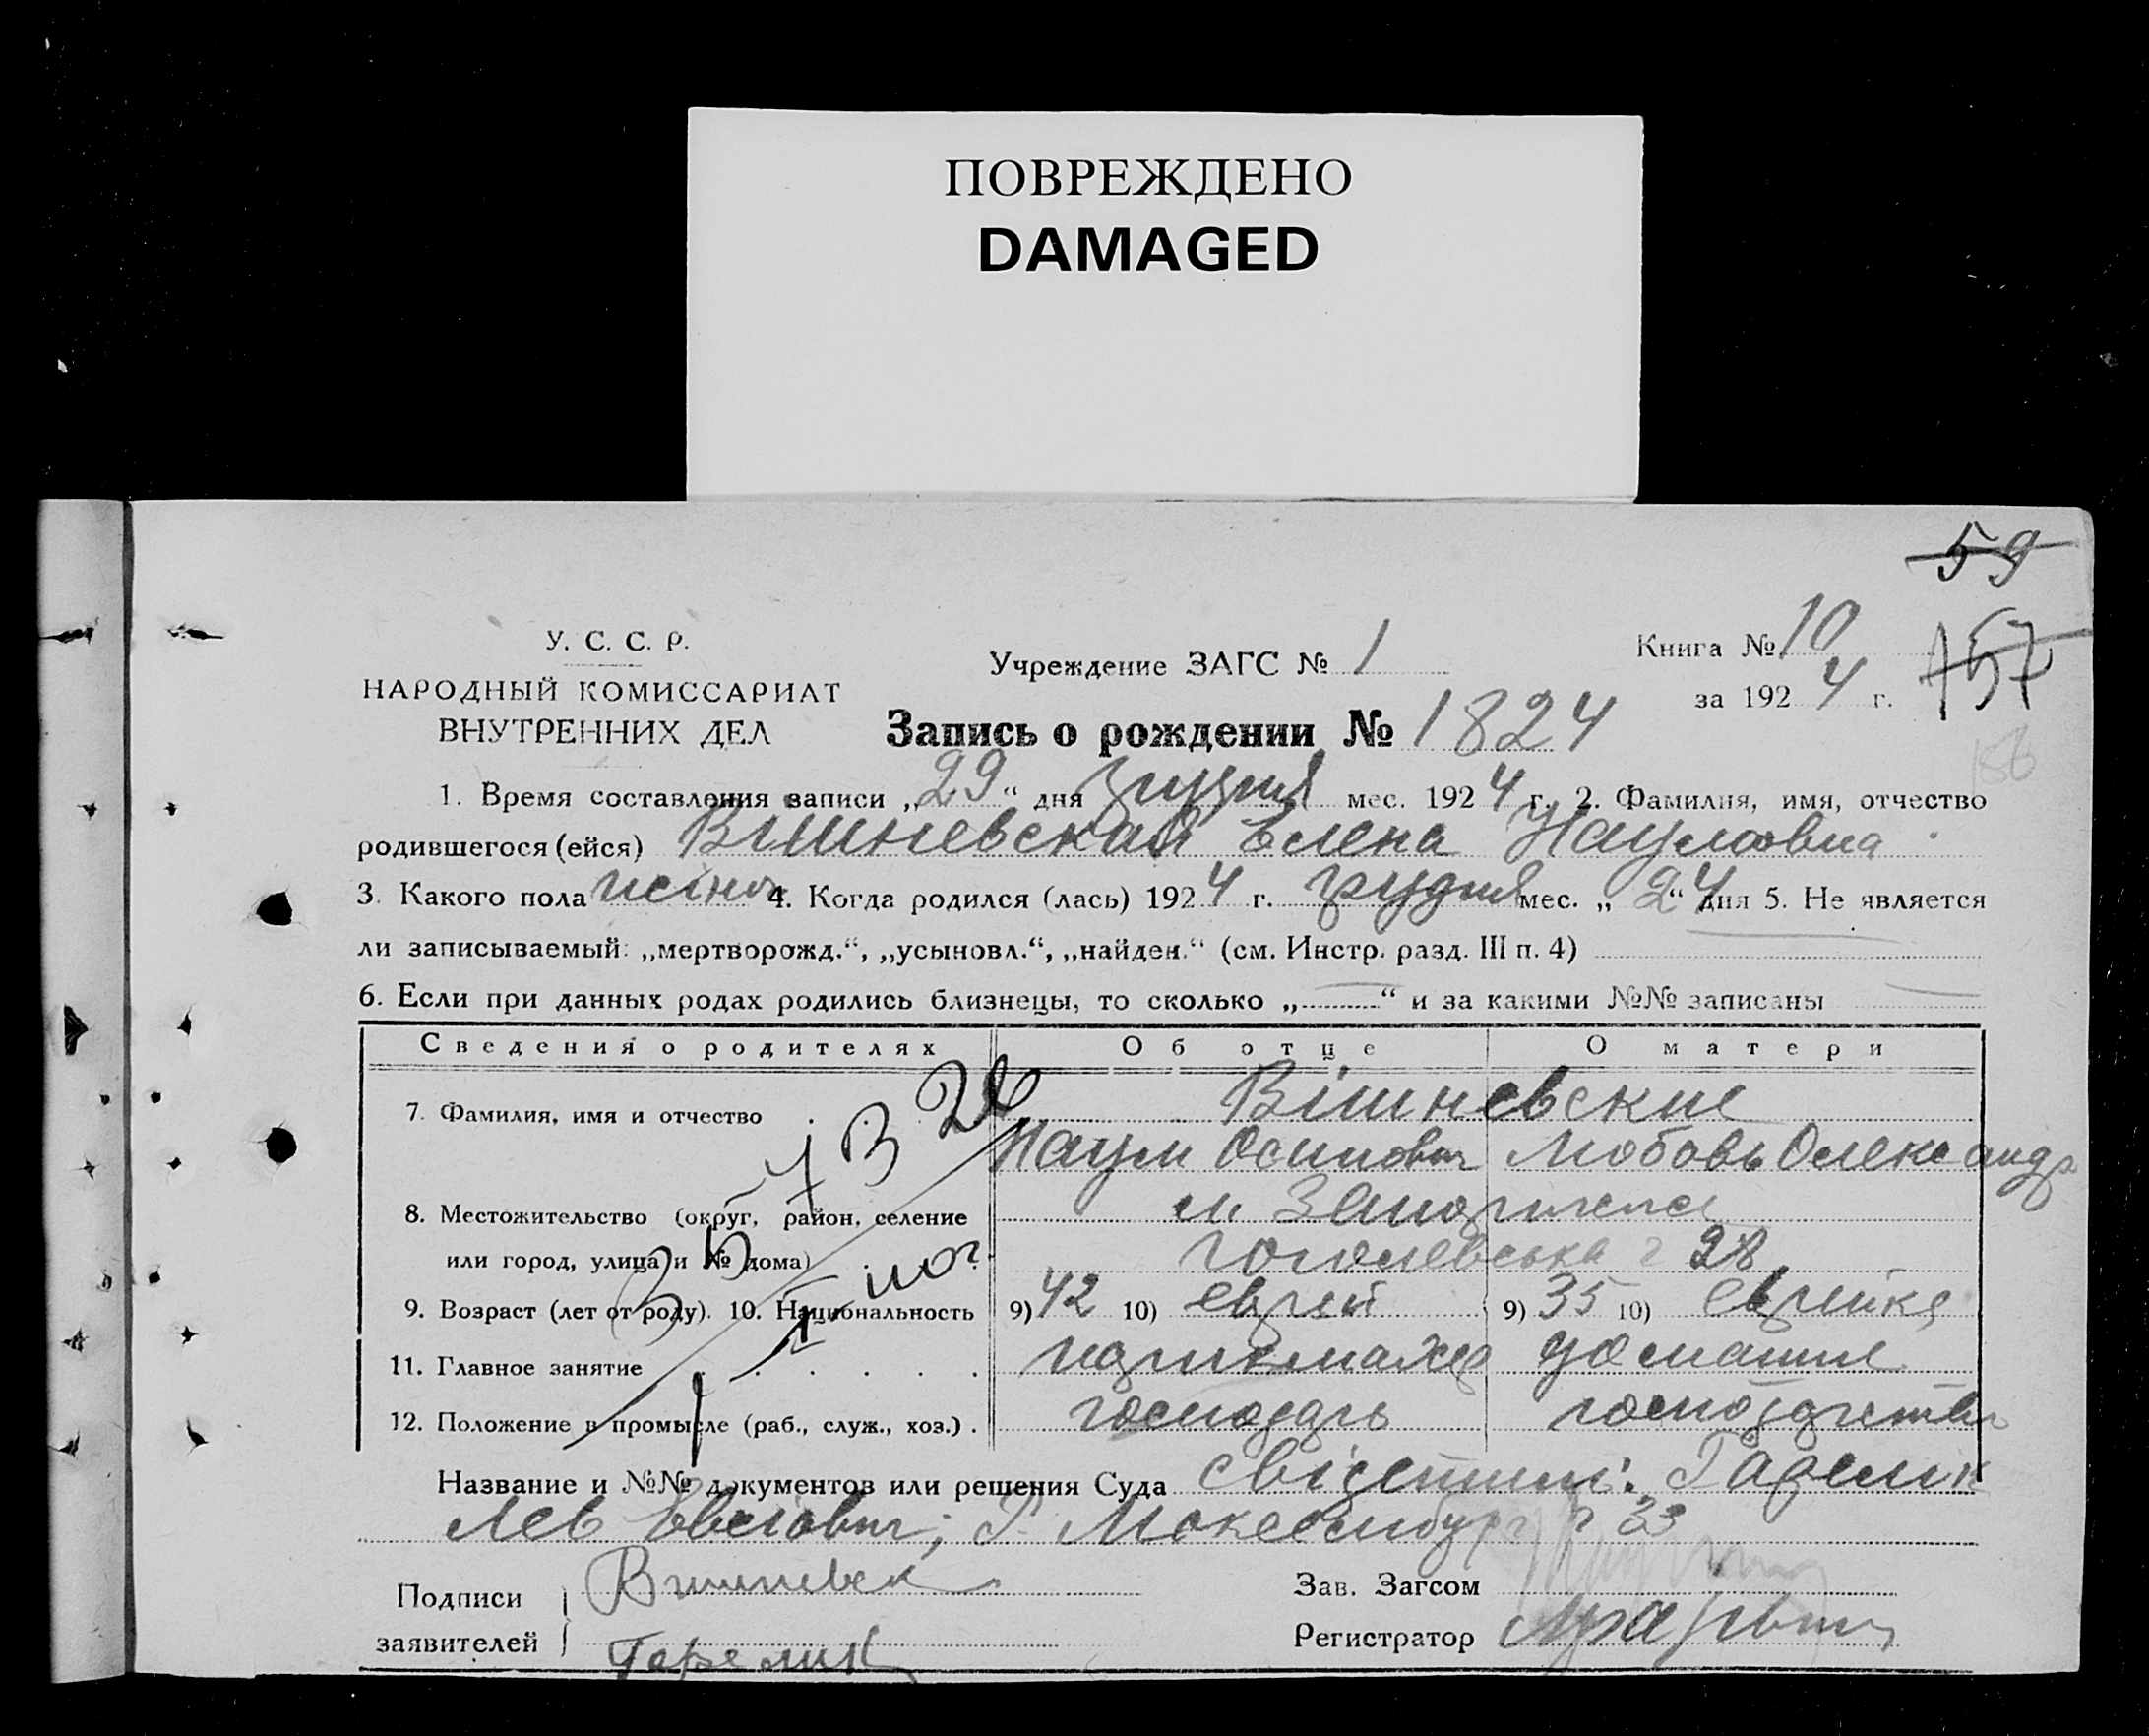 ПОВРЕЖДЕНО
DAMAGED
59
У. С. С. Р.
НАРОДНЫЙ КОМИССАРИАТ
ВНУТРЕННИХ ДЕЛ
Учреждение ЗАГС № 1
Книга № 10
за 1924 г.
157
156
Запись о рождении № 1824
1. Время составления записи „29“ дня грудня мес. 1924 г. 2. Фамилия, имя, отчество
родившегося (ейся) Вішневская Елена Наумовна
3. Какого пола жіноч 4. Когда родился (лась) 1924 г. грудня мес. „24“ дня 5. Не является
ли записываемый: „мертворожд.“, „усыновл.“, „найден.“ (см. Инстр. разд. III п. 4)
6. Если при данных родах родились близнецы, то сколько „ “ и за какими №№ записаны
Сведения о родителях Об отце О матери
7. Фамилия, имя и отчество Вішневские
Наум Осипович Любовь Олександр
8. Местожительство (округ, район, селение м. Запоріжжя
или город, улица и № дома) Гоголевська 28
9. Возраст (лет от роду). 10. Национальность 9) 42 10) еврей 9) 35 10) еврейка
11. Главное занятие домашнє
12. Положение в промысле (раб., служ., хоз.) господарь господарство
Название и №№ документов или решения Суда свідетели:
Лев
Подписи Вишневск
заявителей Горелик
Зав. Загсом
Регистратор